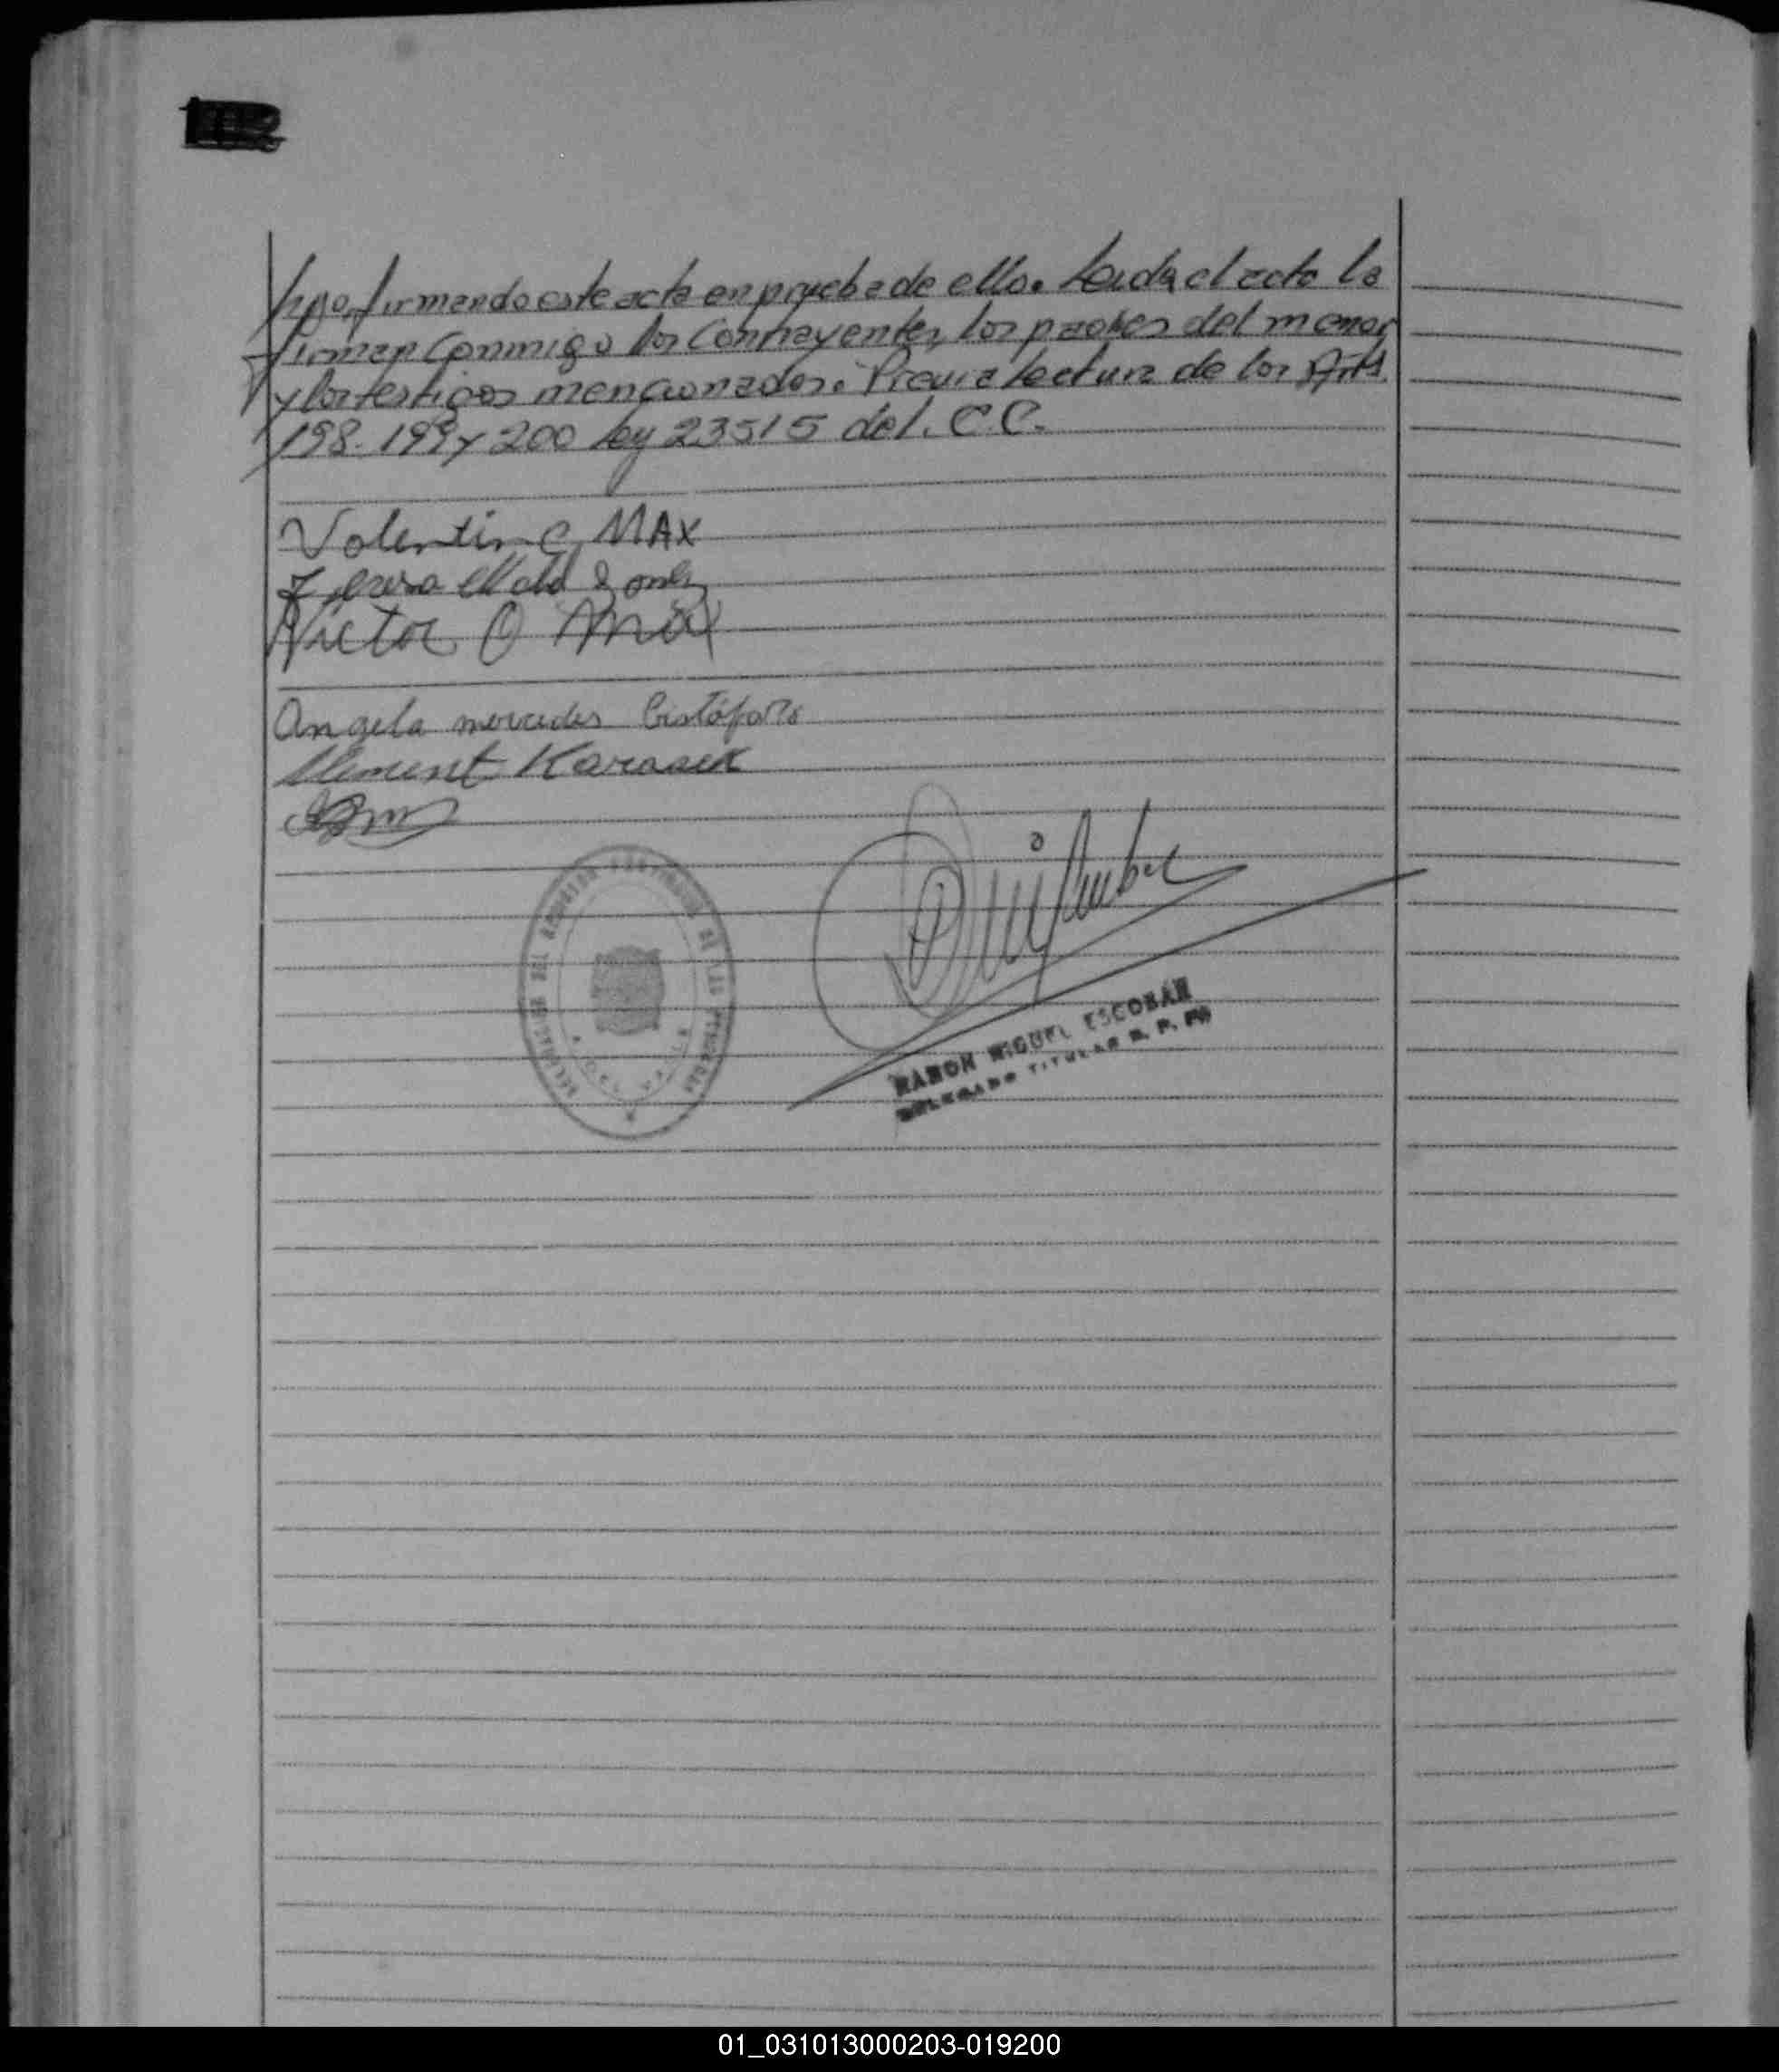 102
hijo, firmando este acta en prueba de ello. Leida el acta la
firman conmigo los Contrayentes, los padres del menor
y los testigos mencionados. Previa lectura de los Arts.
198-199 y 200 ley 23515 del. C.C.
Valentin C. MAX
Victor O Max
Angela mercedes Cristófaro
Karasek
RAMON MIGUEL ESCOBAR
DELEGADO TITULAR R. P. PR
01_031013000203-019200